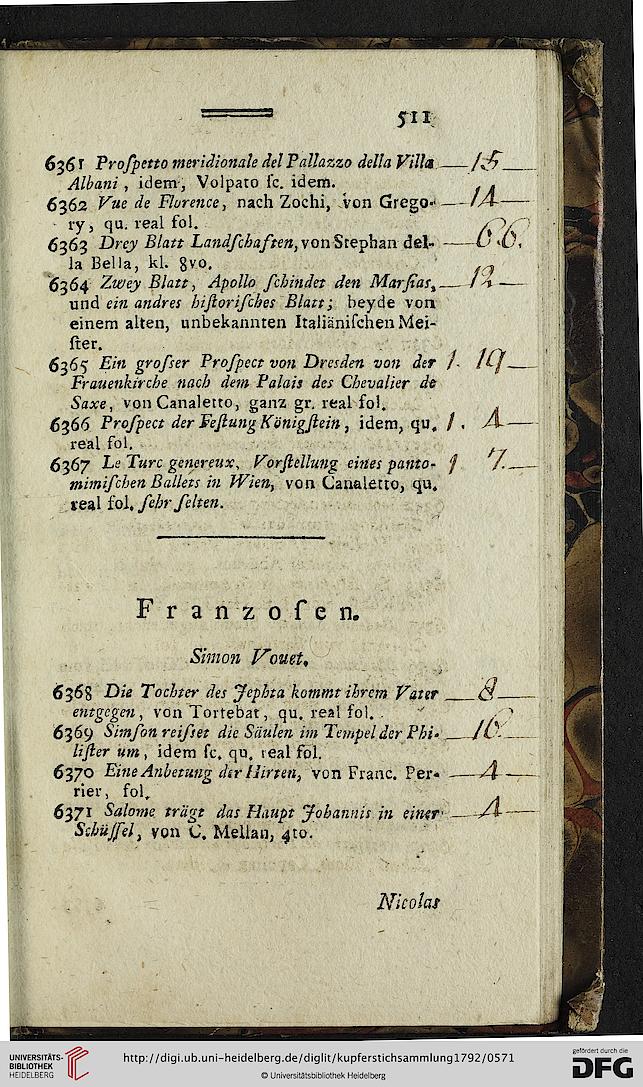 511
6361 Proſpetto meridionale del Pallazzo della Villa — 15 —
Albani, idem, Volpato ſc. idem.
6362 Vue de Florence, nach Zochi, von Grego- — 14 —
ry, qu. real fol.
6363 Drey Blatt Landſchaften, von Stephan del- —
la Bella, kl. 8vo.
6364 Zwey Blatt, Apollo ſchindet den Marſias, — 12 —
und ein andres hiſtoriſches Blatt; beyde von
einem alten, unbekannten Italiäniſchen Mei-
ſter.
6365 Ein groſser Proſpect von Dresden von der 1. 19 —
Frauenkirche nach dem Palais des Chevalier de
Saxe, von Canaletto, ganz gr. real fol.
6366 Proſpect der Feſtung Königſtein, idem, qu. 1. 4 —
real fol.
6367 Le Turc genereux, Vorſtellung eines panto- 1 7. —
mimiſchen Ballets in Wien, von Canaletto, qu.
real fol. ſehr ſelten.
Franzoſen.
Simon Vouet.
6368 Die Tochter des Jephta kommt ihrem Vater — 8 —
entgegen, von Tortebat, qu. real fol.
6369 Simſon reiſset die Säulen im Tempel der Phi- — 16 —
liſter um, idem ſc. qu. real fol.
6370 Eine Anbetung der Hirten, von Franc. Per- — 4 —
rier, fol.
6371 Salome trägt das Haupt Johannis in einer — 4 —
Schüſſel, von C. Mellan, 4to.
Nicolas
UNIVERSITÄTS-
BIBLIOTHEK
HEIDELBERG
http://digi.ub.uni-heidelberg.de/diglit/kupferstichsammlung1792/0571
© Universitätsbibliothek Heidelberg
gefördert durch die
DFG